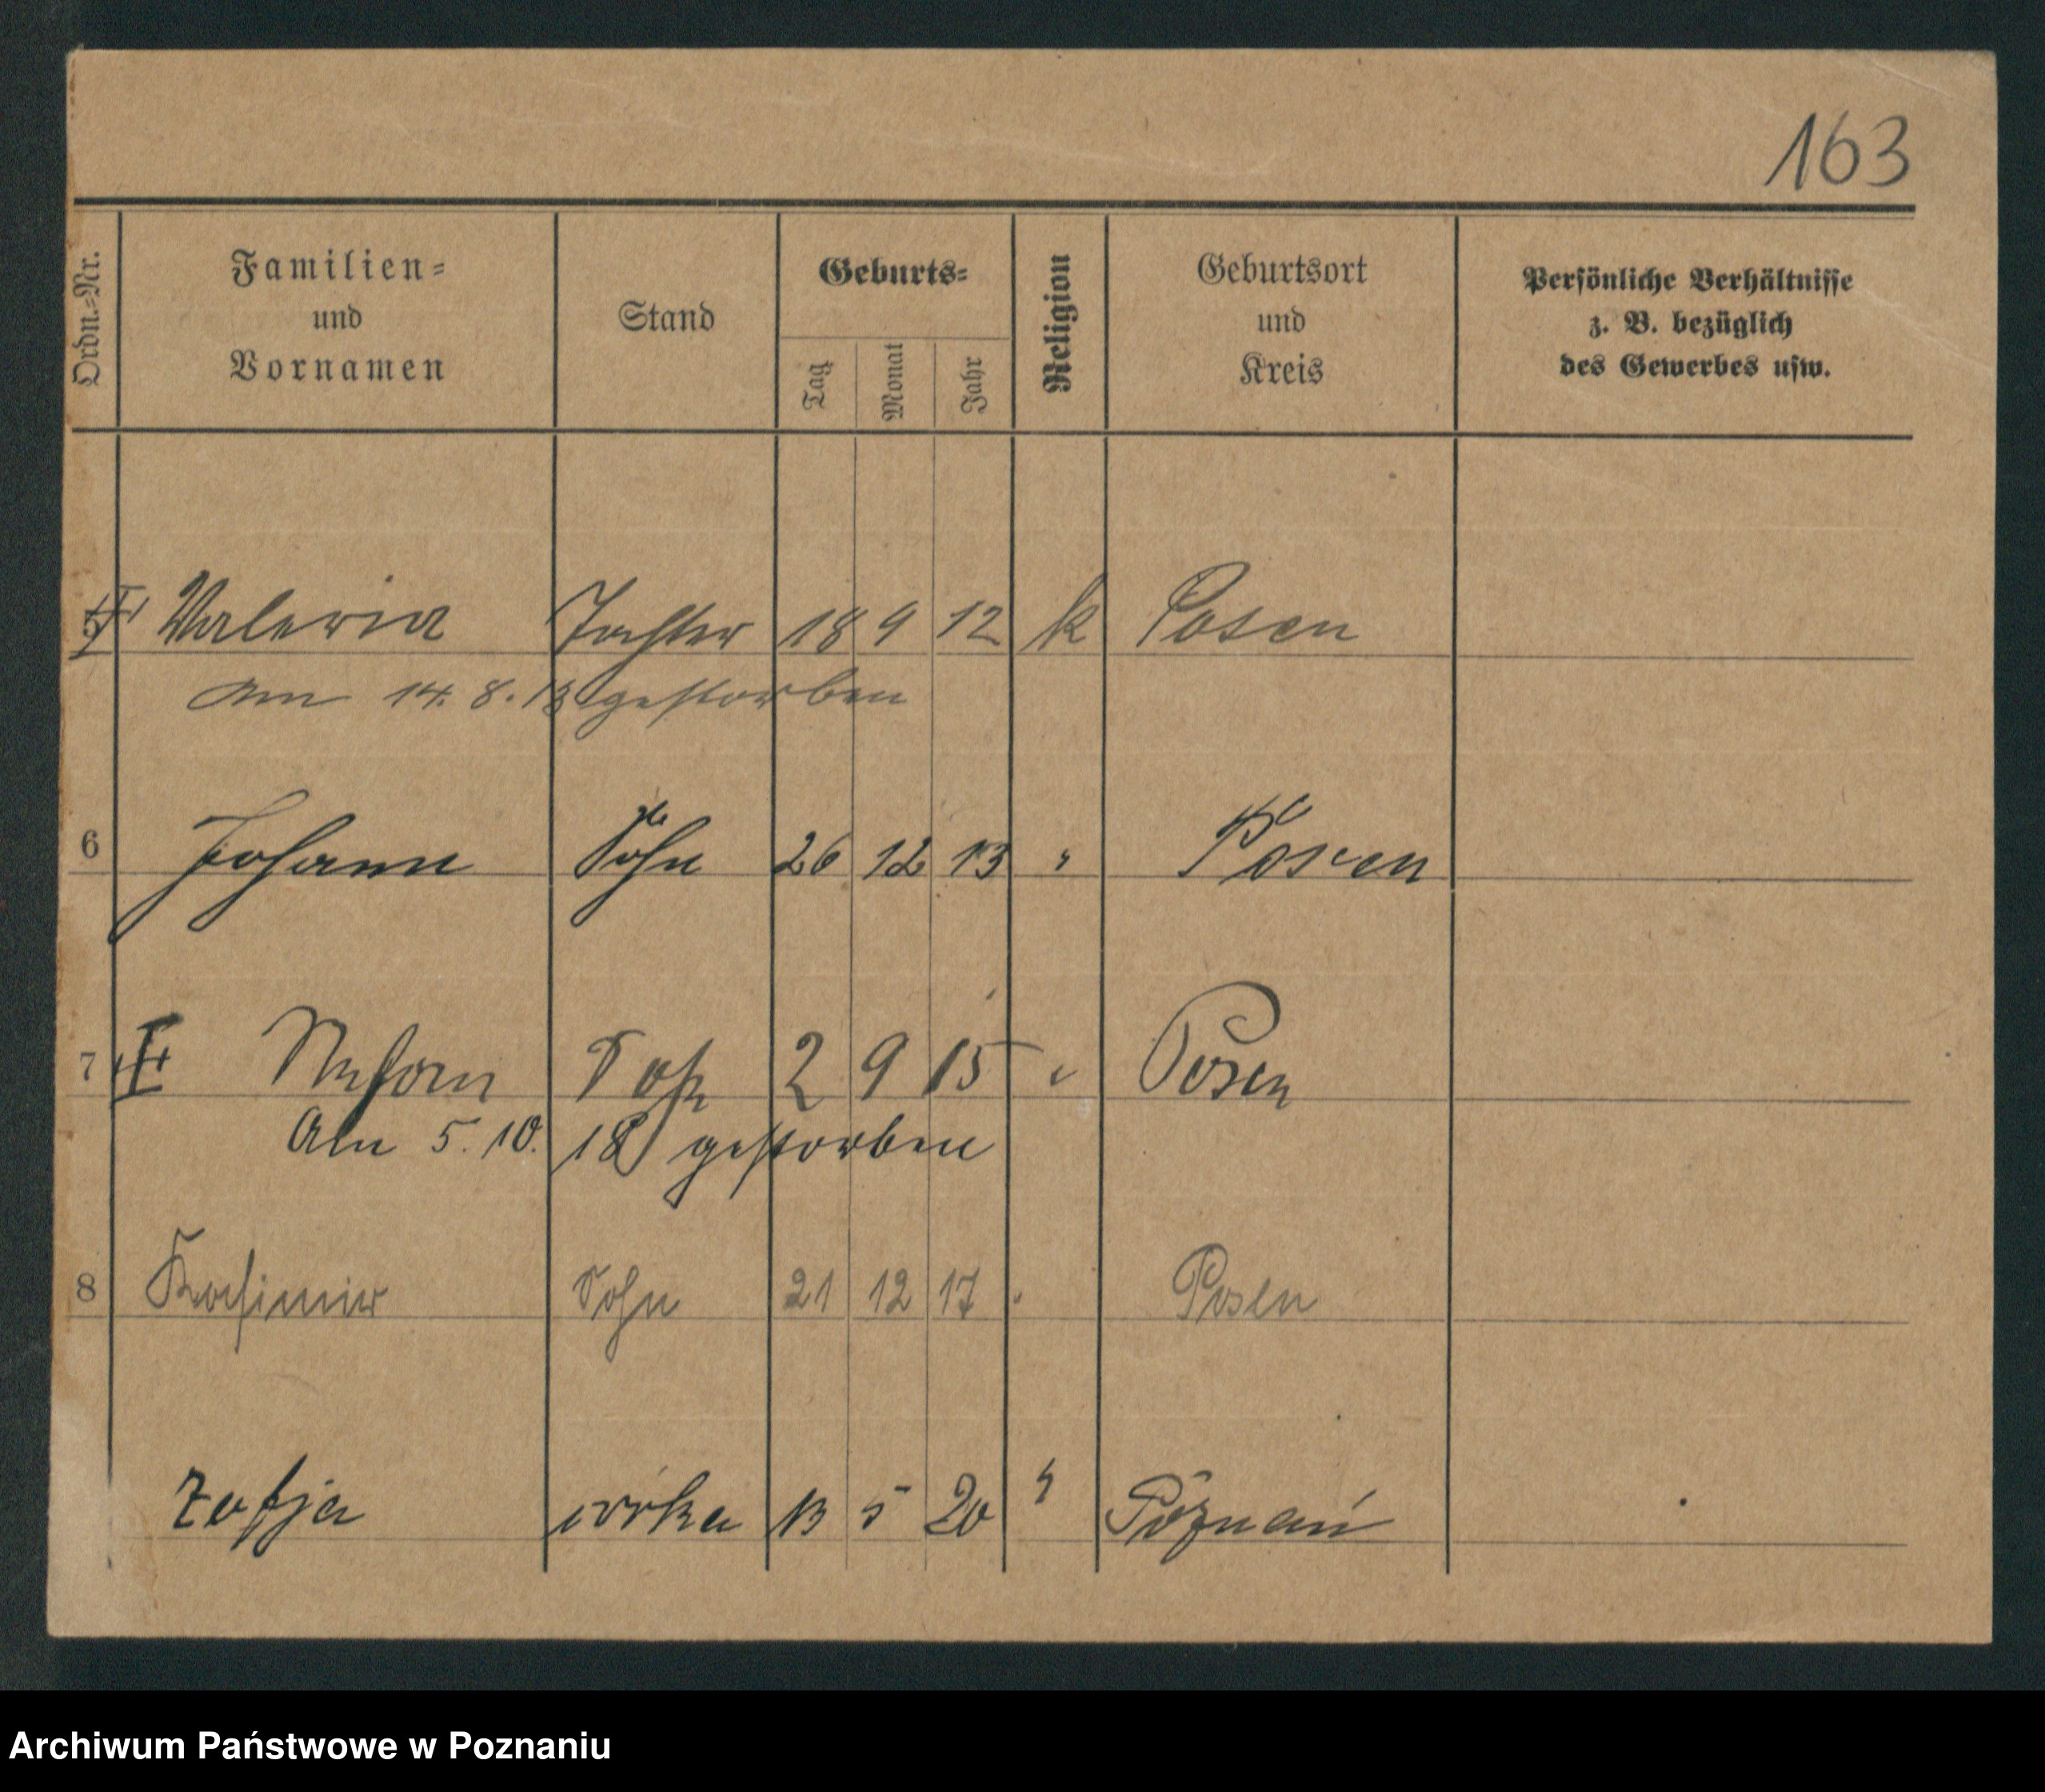 163
Ordn.-Nr. Familien- und Vornamen Stand Geburts- Tag Monat Jahr Religion Geburtsort und Kreis Persönliche Verhältnisse z. B. bezüglich des Gewerbes usw.
5 Valeria Tochter 18 9 12 k Posen
Am 14. 8. 13 gestorben
6 Johann Sohn 26 12 13 " Posen
7 Sohn 2 9 15 " Posen
Am 5. 10. 18 gestorben
8 Kasimir Sohn 21 12 17 " Posen
Zofja córka 13 5 20 " Poznań
Archiwum Państwowe w Poznaniu